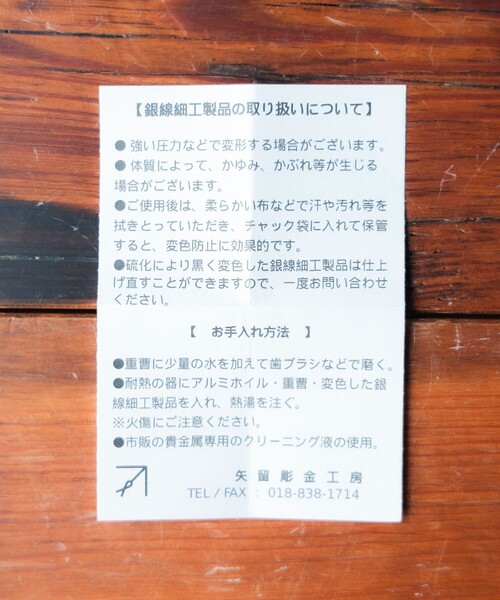 【銀線細工製品の取り扱いについて】
● 強い圧力などで変形する場合がございます。
● 体質によって、かゆみ、かぶれ等が生じる
場合がございます。
●ご使用後は、柔らかい布などで汗や汚れ等を
拭きとっていただき、チャック袋に入れて保管
すると、変色防止に効果的です。
●硫化により黒く変色した銀線細工製品は仕上
げ直すことができますので、一度お問い合わせ
ください。
【 お手入れ方法 】
●重曹に少量の水を加えて歯ブラシなどで磨く。
●耐熱の器にアルミホイル・重曹・変色した銀
線細工製品を入れ、熱湯を注ぐ。
※火傷にご注意ください。
●市販の貴金属専用のクリーニング液の使用。
矢留彫金工房
TEL / FAX : 018-838-1714